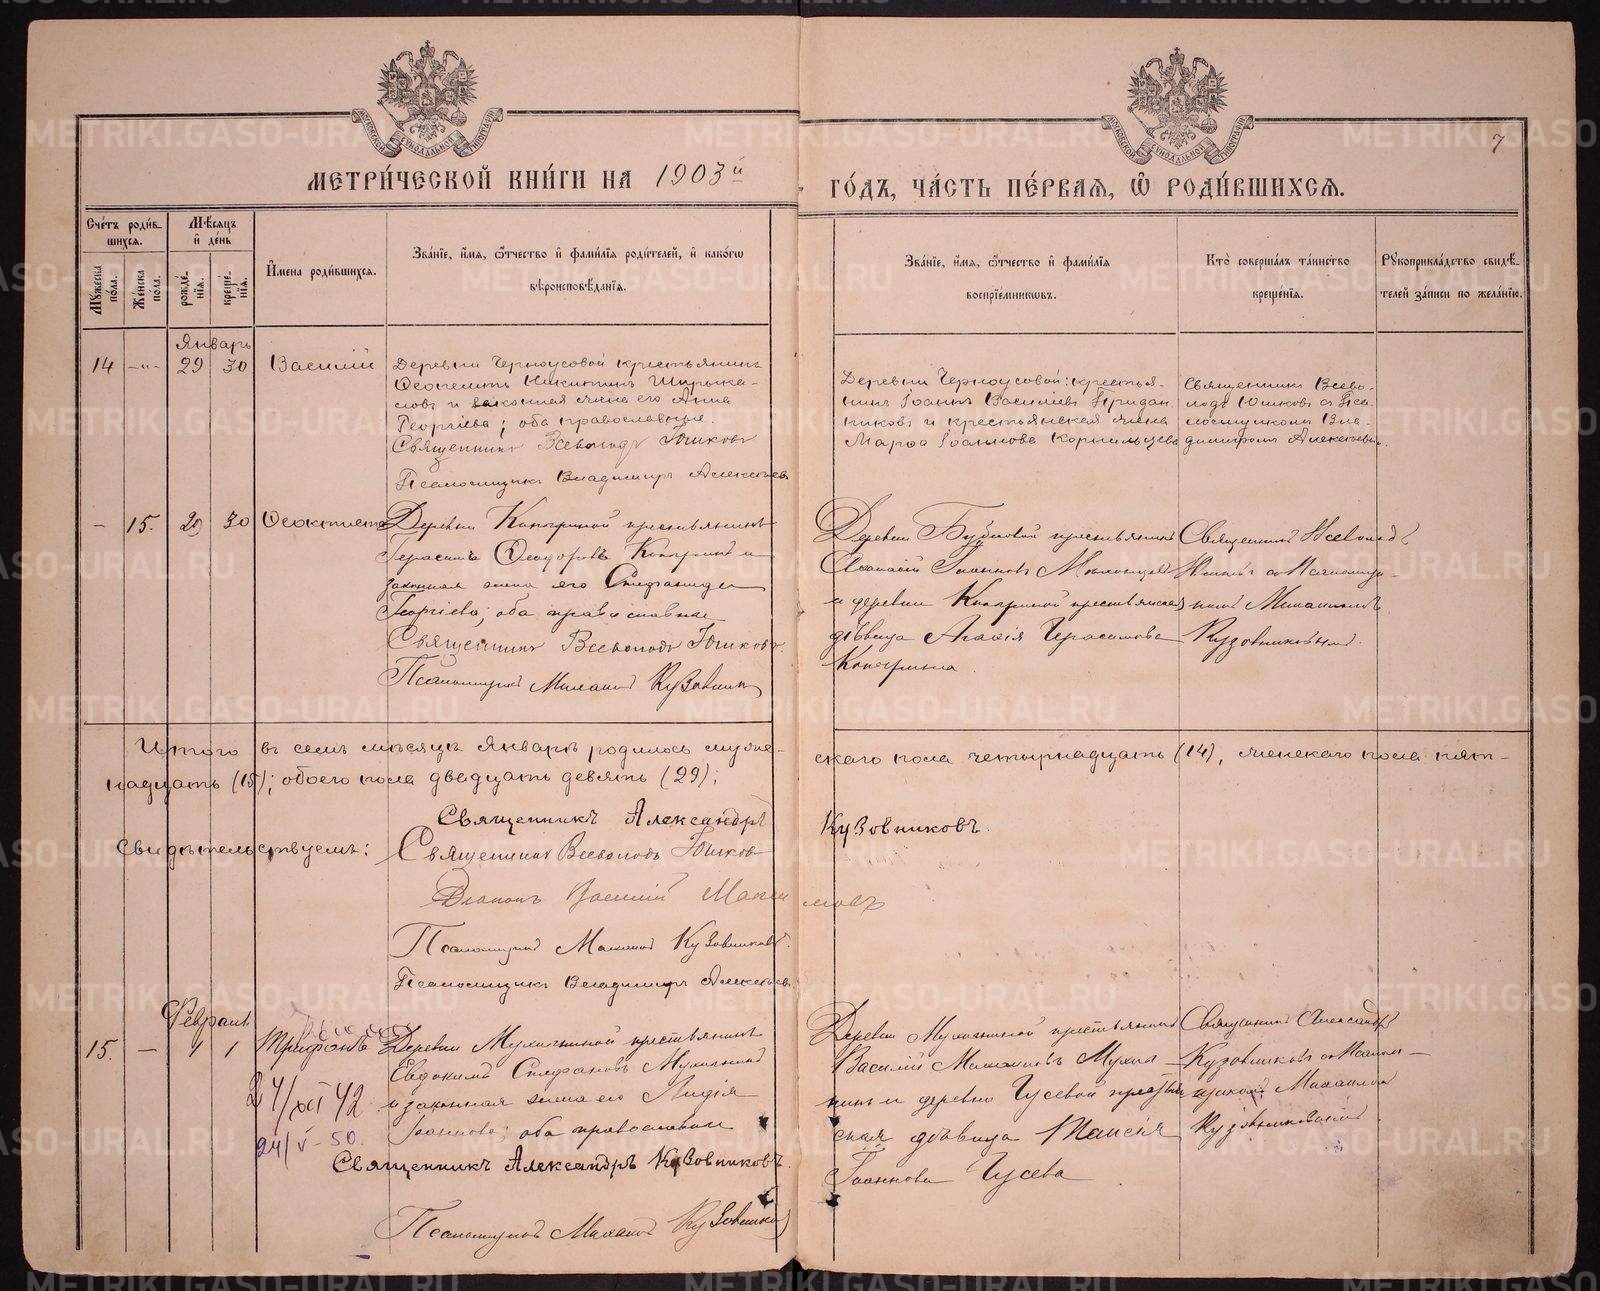 МЕТРИЧЕСКОЙ КНИГИ НА 1903й
ГОДЪ, ЧАСТЬ ПЕРВАЯ, Ѡ РОДИВШИХСЯ.
7
Счетъ родив-
шихся.
Мужеска
пола.
Женска
пола.
Мѣсяцъ
и день
рожде-
нія.
креще-
нія.
Имена родившихся.
Званіе, имя, ѿчество и фамилія родителей, и какогѡ
вѣроисповѣданія.
Званіе, имя, ѿчество и фамилія
воспріемниковъ.
Кто совершалъ таинство
крещенія.
Рукоприкладство свидѣ-
телей записи по желанію.
Январь
14 -"- 29 30 Василій
Деревни Черноусовой крестьянинъ
Ѳеоктистъ Никитинъ
и законная жена его Анна
Георгіева; оба православные.
Священникъ Всеволодъ Юшковъ
Псаломщикъ Владимиръ Алексѣевъ
Деревни Черноусовой: крестья-
нинъ Іоаннъ Васильевъ Придан-
никовъ и крестьянская жена
Марѳа Іоаннова Корнильцева
Священникъ Всево-
лодъ Юшковъ съ Пса-
ломщикомъ Вла-
димиромъ Алексѣевы
- 15. 29 30 Ѳеоктиста
Деревни крестьянинъ
Герасимъ Ѳеодоровъ и
законная жена его
Георгіева; оба православные
Священникъ Всеволодъ Юшковъ.
Псаломщикъ Михаилъ Кузовник
Деревни крестьянинъ
Аѳанасій Іоанновъ
и деревни крестьянская
дѣвица Герасимова
Священникъ Всеволодъ
Юшковъ съ Псаломщи-
комъ Михаиломъ
Кузовниковымъ.
Итого въ семъ мѣсяцѣ Январѣ родилось муже-
скаго пола четырнадцать (14), женскаго пола пят-
надцать (15); обоего пола двадцать девять (29);
Священникъ Александръ
Кузовниковъ.
Свидѣтельствуемъ:
Священникъ Всеволодъ Юшковъ
Діаконъ Василій Макси
мовъ
Псаломщикъ Михаилъ Кузовниковъ.
Псаломщикъ Владимиръ Алексѣевъ
Февраль
15. - 1 1 Трифонъ
24/XII 42
24/V-50.
Деревни Мухиной крестьянинъ
Евдокимъ Стефановъ
и законная жена его Лидія
Іоаннова; оба православные
Священникъ Александръ Кузовниковъ.
Псаломщикъ Михаилъ Кузовников
Деревни крестьянинъ
Василій Мухи-
нинъ и деревни Гусевой крестьян
ская дѣвица Таисія
Іоаннова Гусева
Священникъ Александръ
Кузовниковъ съ Псалом-
щикомъ Михаиломъ
Кузовниковымъ